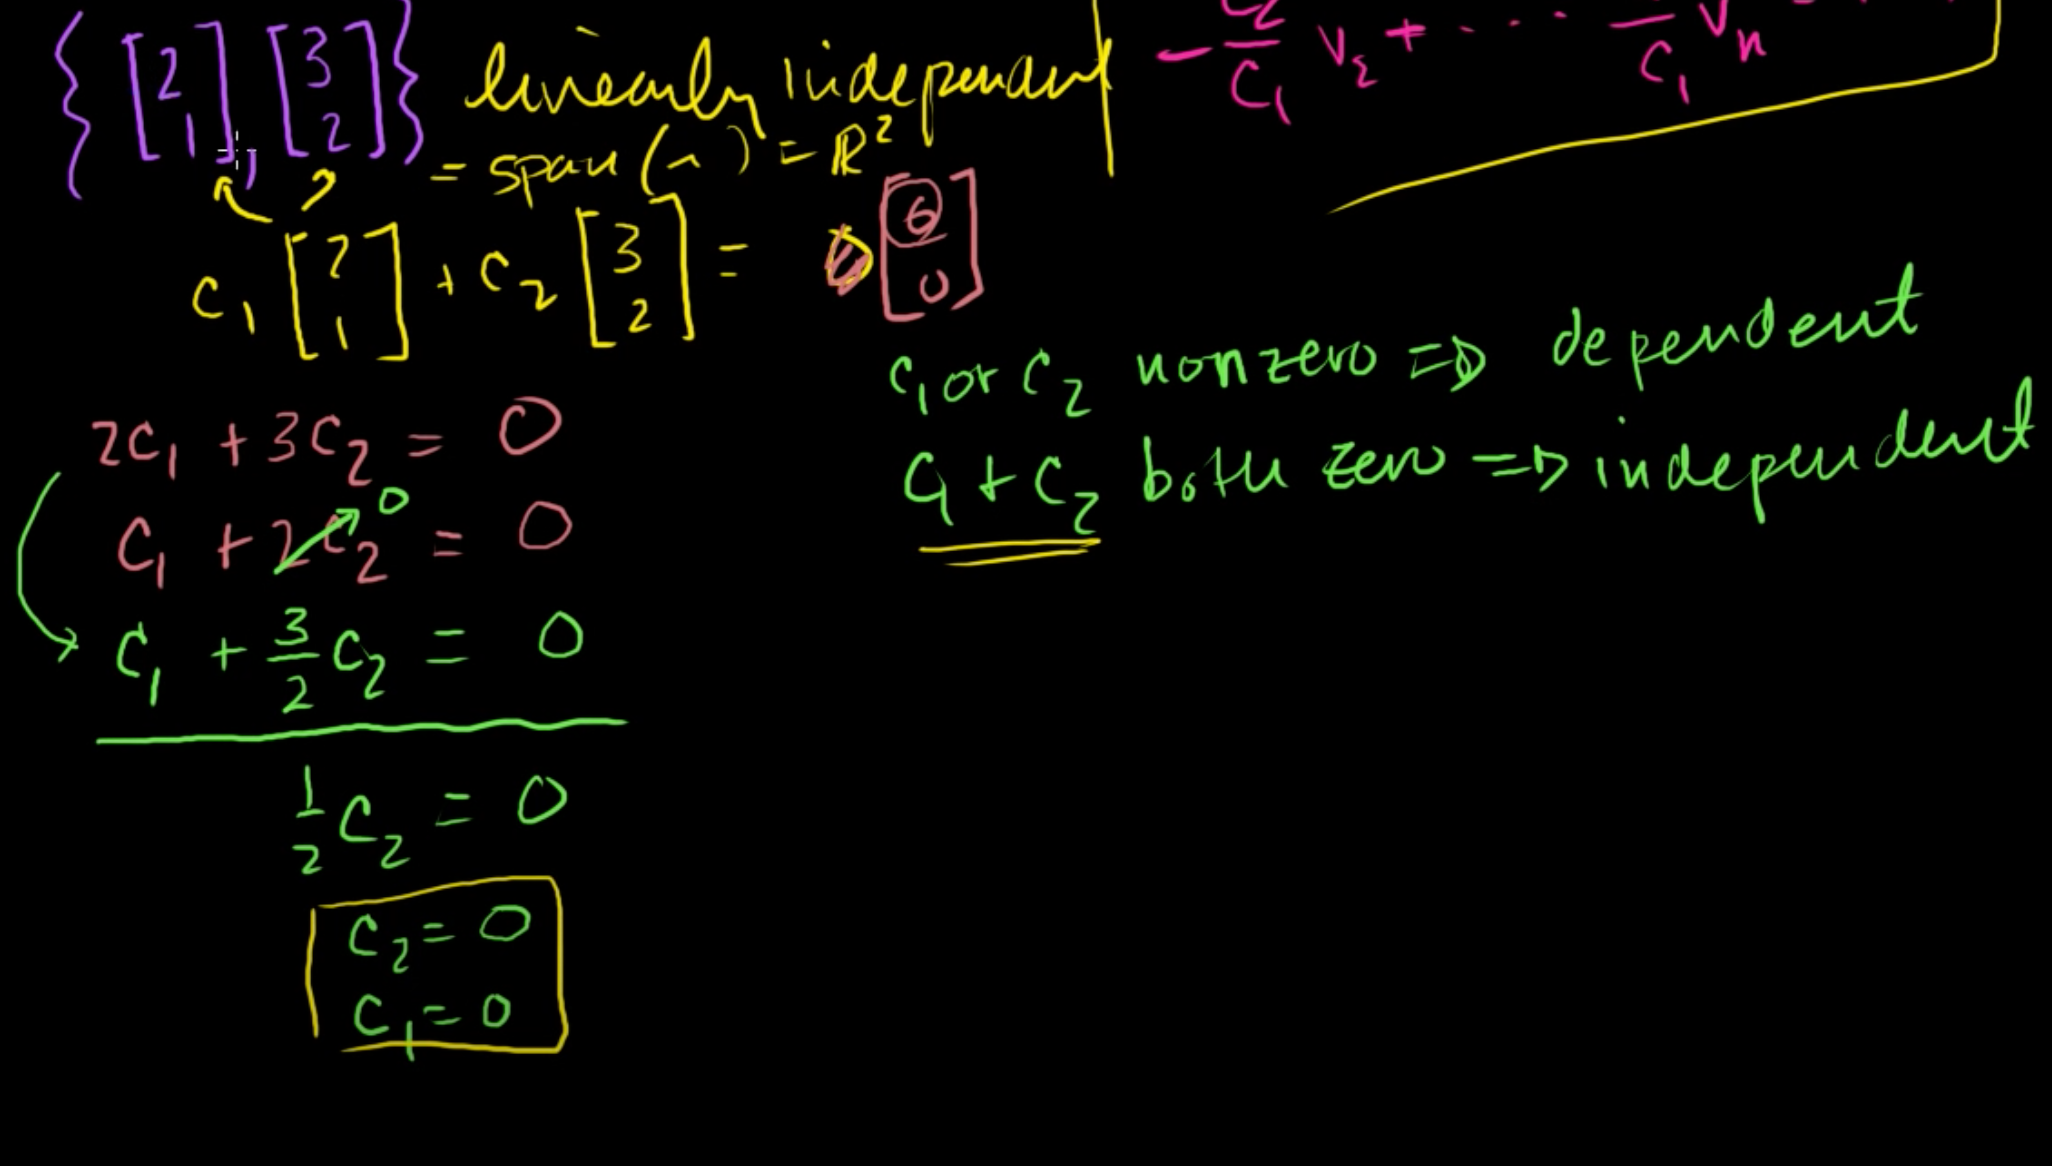 {[2 1], [3 2]} linearly independent
= span( ) = R²
- c₂/c₁ v₂ + ... /c₁ vₙ
c₁ [2 1] + c₂ [3 2] = 0 [0 0]
c₁ or c₂ nonzero => dependent
c₁ + c₂ both zero => independent
2c₁ + 3c₂ = 0
c₁ + 2c₂ = 0
0
c₁ + 3/2 c₂ = 0
1/2 c₂ = 0
c₂ = 0
c₁ = 0